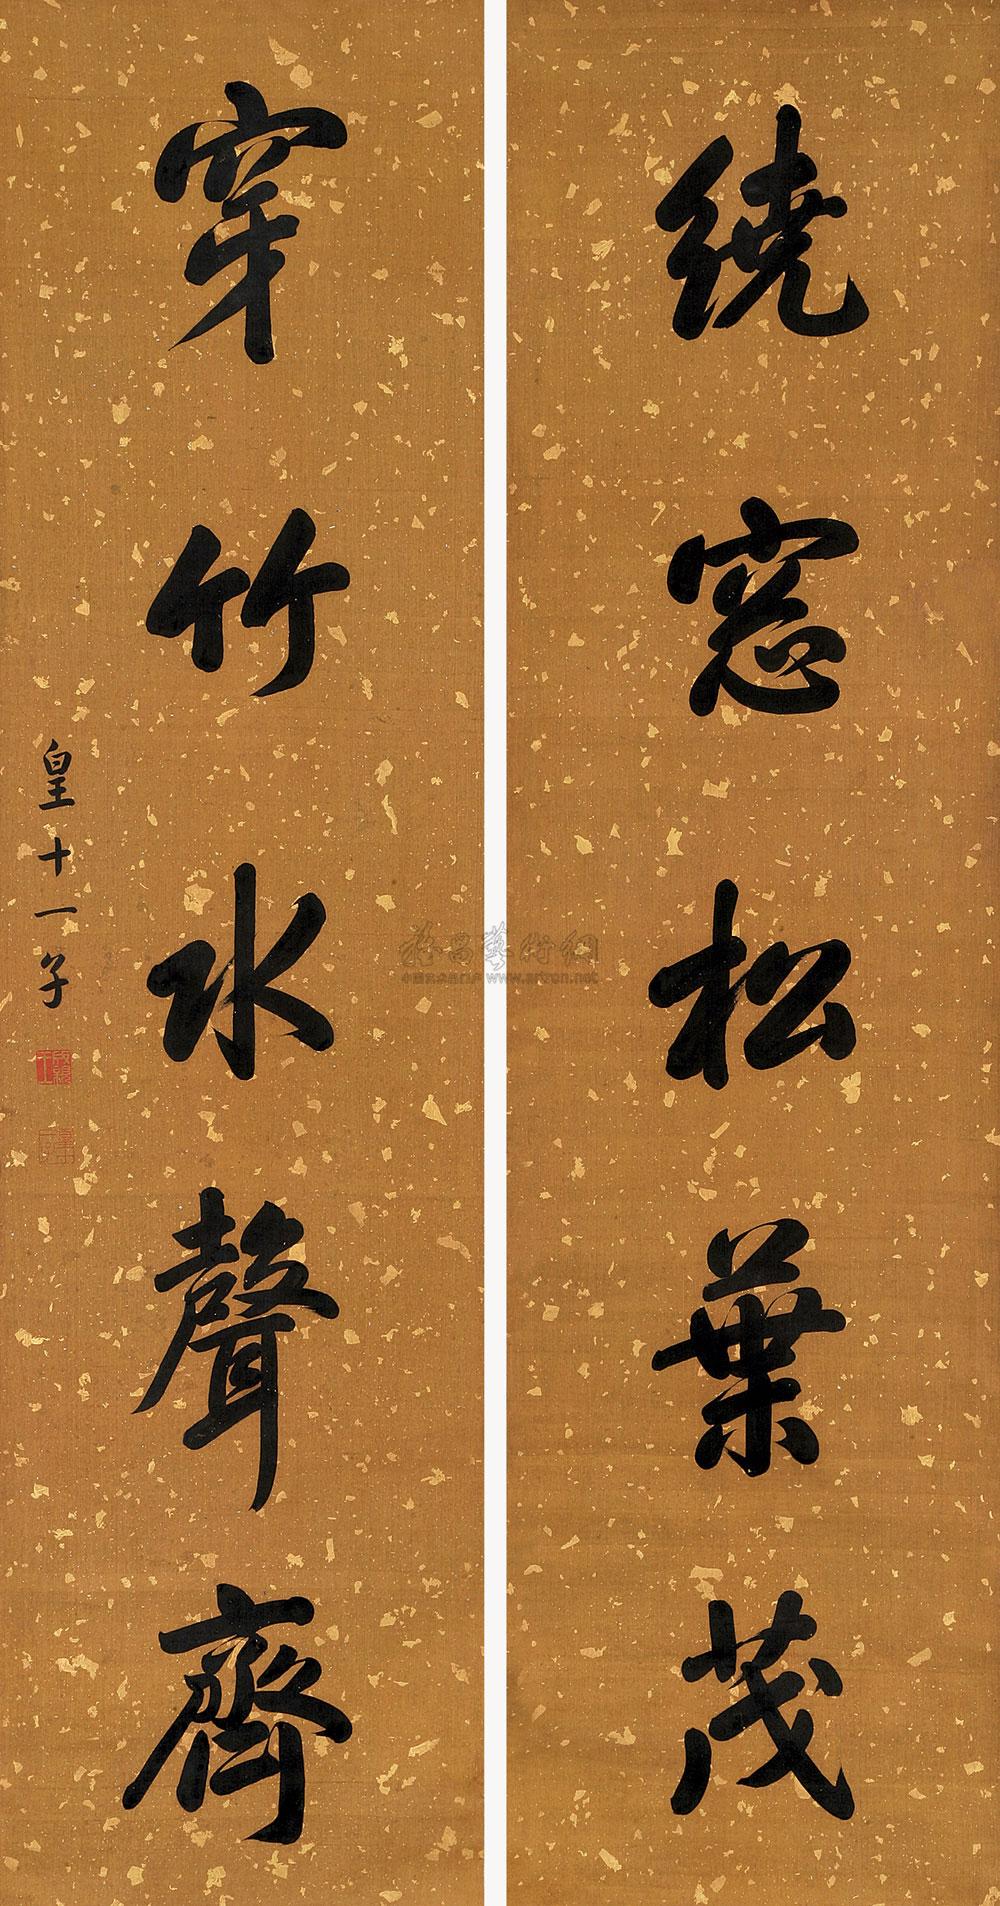 繞窓松葉茂
穿竹水聲齊
皇十一子
雅昌藝術網
www.artron.net